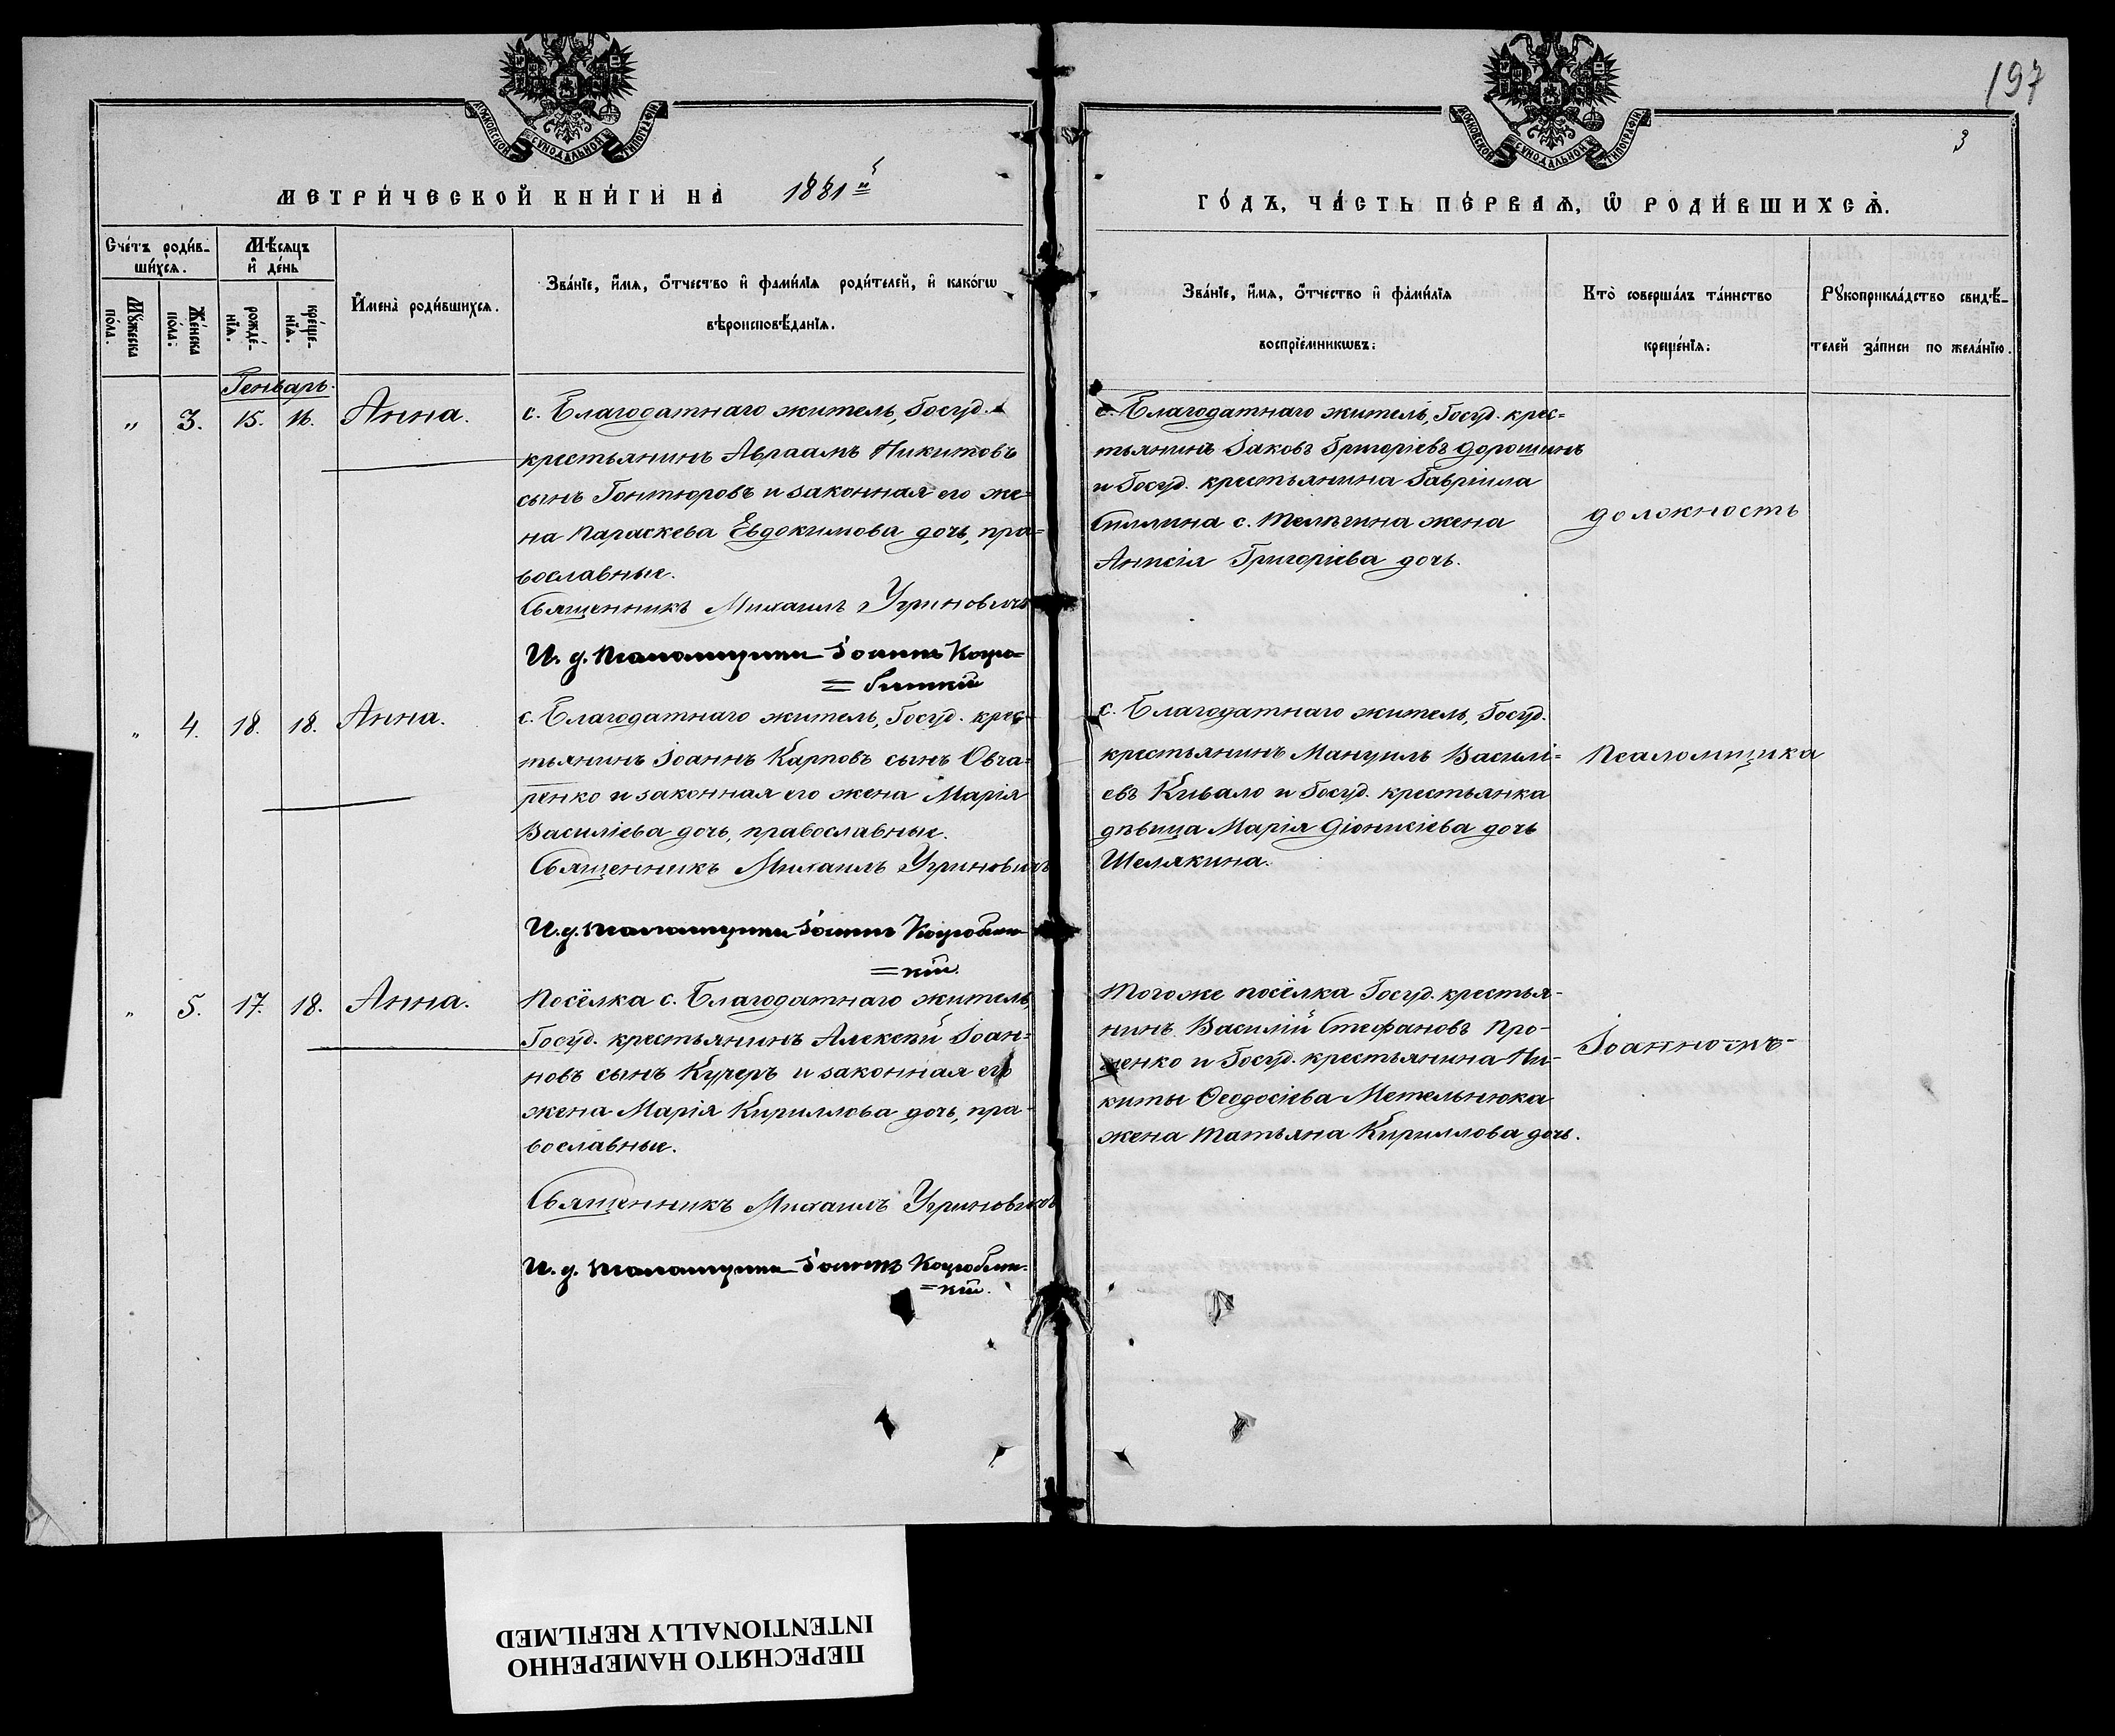 197
3
МОСКОВСКОЙ СѴНОДАЛЬНОЙ ТИПОГРАФІИ
МОСКОВСКОЙ СѴНОДАЛЬНОЙ ТИПОГРАФІИ
МЕТРИ́ЧЕСКОЙ КНИ́ГИ НА̀ 1881й
ГО́ДЪ, ЧА́СТЬ ПЕ́РВАѦ, Ѡ҆ РОДИ́ВШИХСѦ.
Сче́тъ роди́в-
ши́хсѧ.
Мꙋ́жеска по́ла.
Же́нска по́ла.
Мѣ́сѧцъ
и҆ де́нь
рожде́-
нїѧ.
креще́-
нїѧ.
И҆мена̀ роди́вшихсѧ.
Зва́нїе, и҆́мѧ, ѻ҆́тчество и҆ фами́лїѧ роди́телей, и҆ како́гѡ
вѣроисповѣ́данїѧ.
Зва́нїе, и҆́мѧ, ѻ҆́тчество и҆ фами́лїѧ
воспрїе́мникѡвъ.
Кто̀ соверша́лъ та́инство
креще́нїѧ.
Рꙋкоприкла́дство свидѣ́-
телей за́писи по жела́нїю.
Генварь.
„ 3. 15. 16. Анна.
с. Благодатнаго житель, Госуд.
крестьянинъ Авраамъ Никитовъ
сынъ Гонтюровъ и законная его же-
на Параскева Евдокимова дочь, пра-
вославные.
Священникъ Михаилъ Угриновичъ
И. д. Псаломщика Іоаннъ
с. Благодатнаго житель, Госуд. крес-
тьянинъ Іаковъ Григоріевъ Дорошинъ
и Госуд. крестьянина Гавріила
с. жена
Анисія Григоріева дочь.
должность
„ 4. 18. 18. Анна.
с. Благодатнаго житель, Госуд. крес-
тьянинъ Іоаннъ Карповъ сынъ Овча-
ренко и законная его жена Марія
Василіева дочь, православные.
Священникъ Михаилъ Угриновичъ
И. д. Псаломщика Іоаннъ
с. Благодатнаго житель, Госуд.
крестьянинъ Мануилъ Василі-
евъ Кивало и Госуд. крестьянка
дѣвица Марія Діонисіева дочь
Шелякина.
Псаломщика
„ 5. 17. 18. Анна.
Посёлка с. Благодатнаго житель,
Госуд. крестьянинъ Алексѣй Іоан-
новъ сынъ Кучеръ и законная его
жена Марія Кириллова дочь, пра-
вославные.
Священникъ Михаилъ Угриновичъ
И. д. Псаломщика Іоаннъ
Тогоже посёлка Госуд. крестья-
нинъ Василій Стефановъ Про-
ценко и Госуд. крестьянина Ни-
киты Ѳеодосіева Метельнюка
жена Татьяна Кириллова дочь.
ПЕРЕСНЯТО НАМЕРЕННО
INTENTIONALLY REFILMED